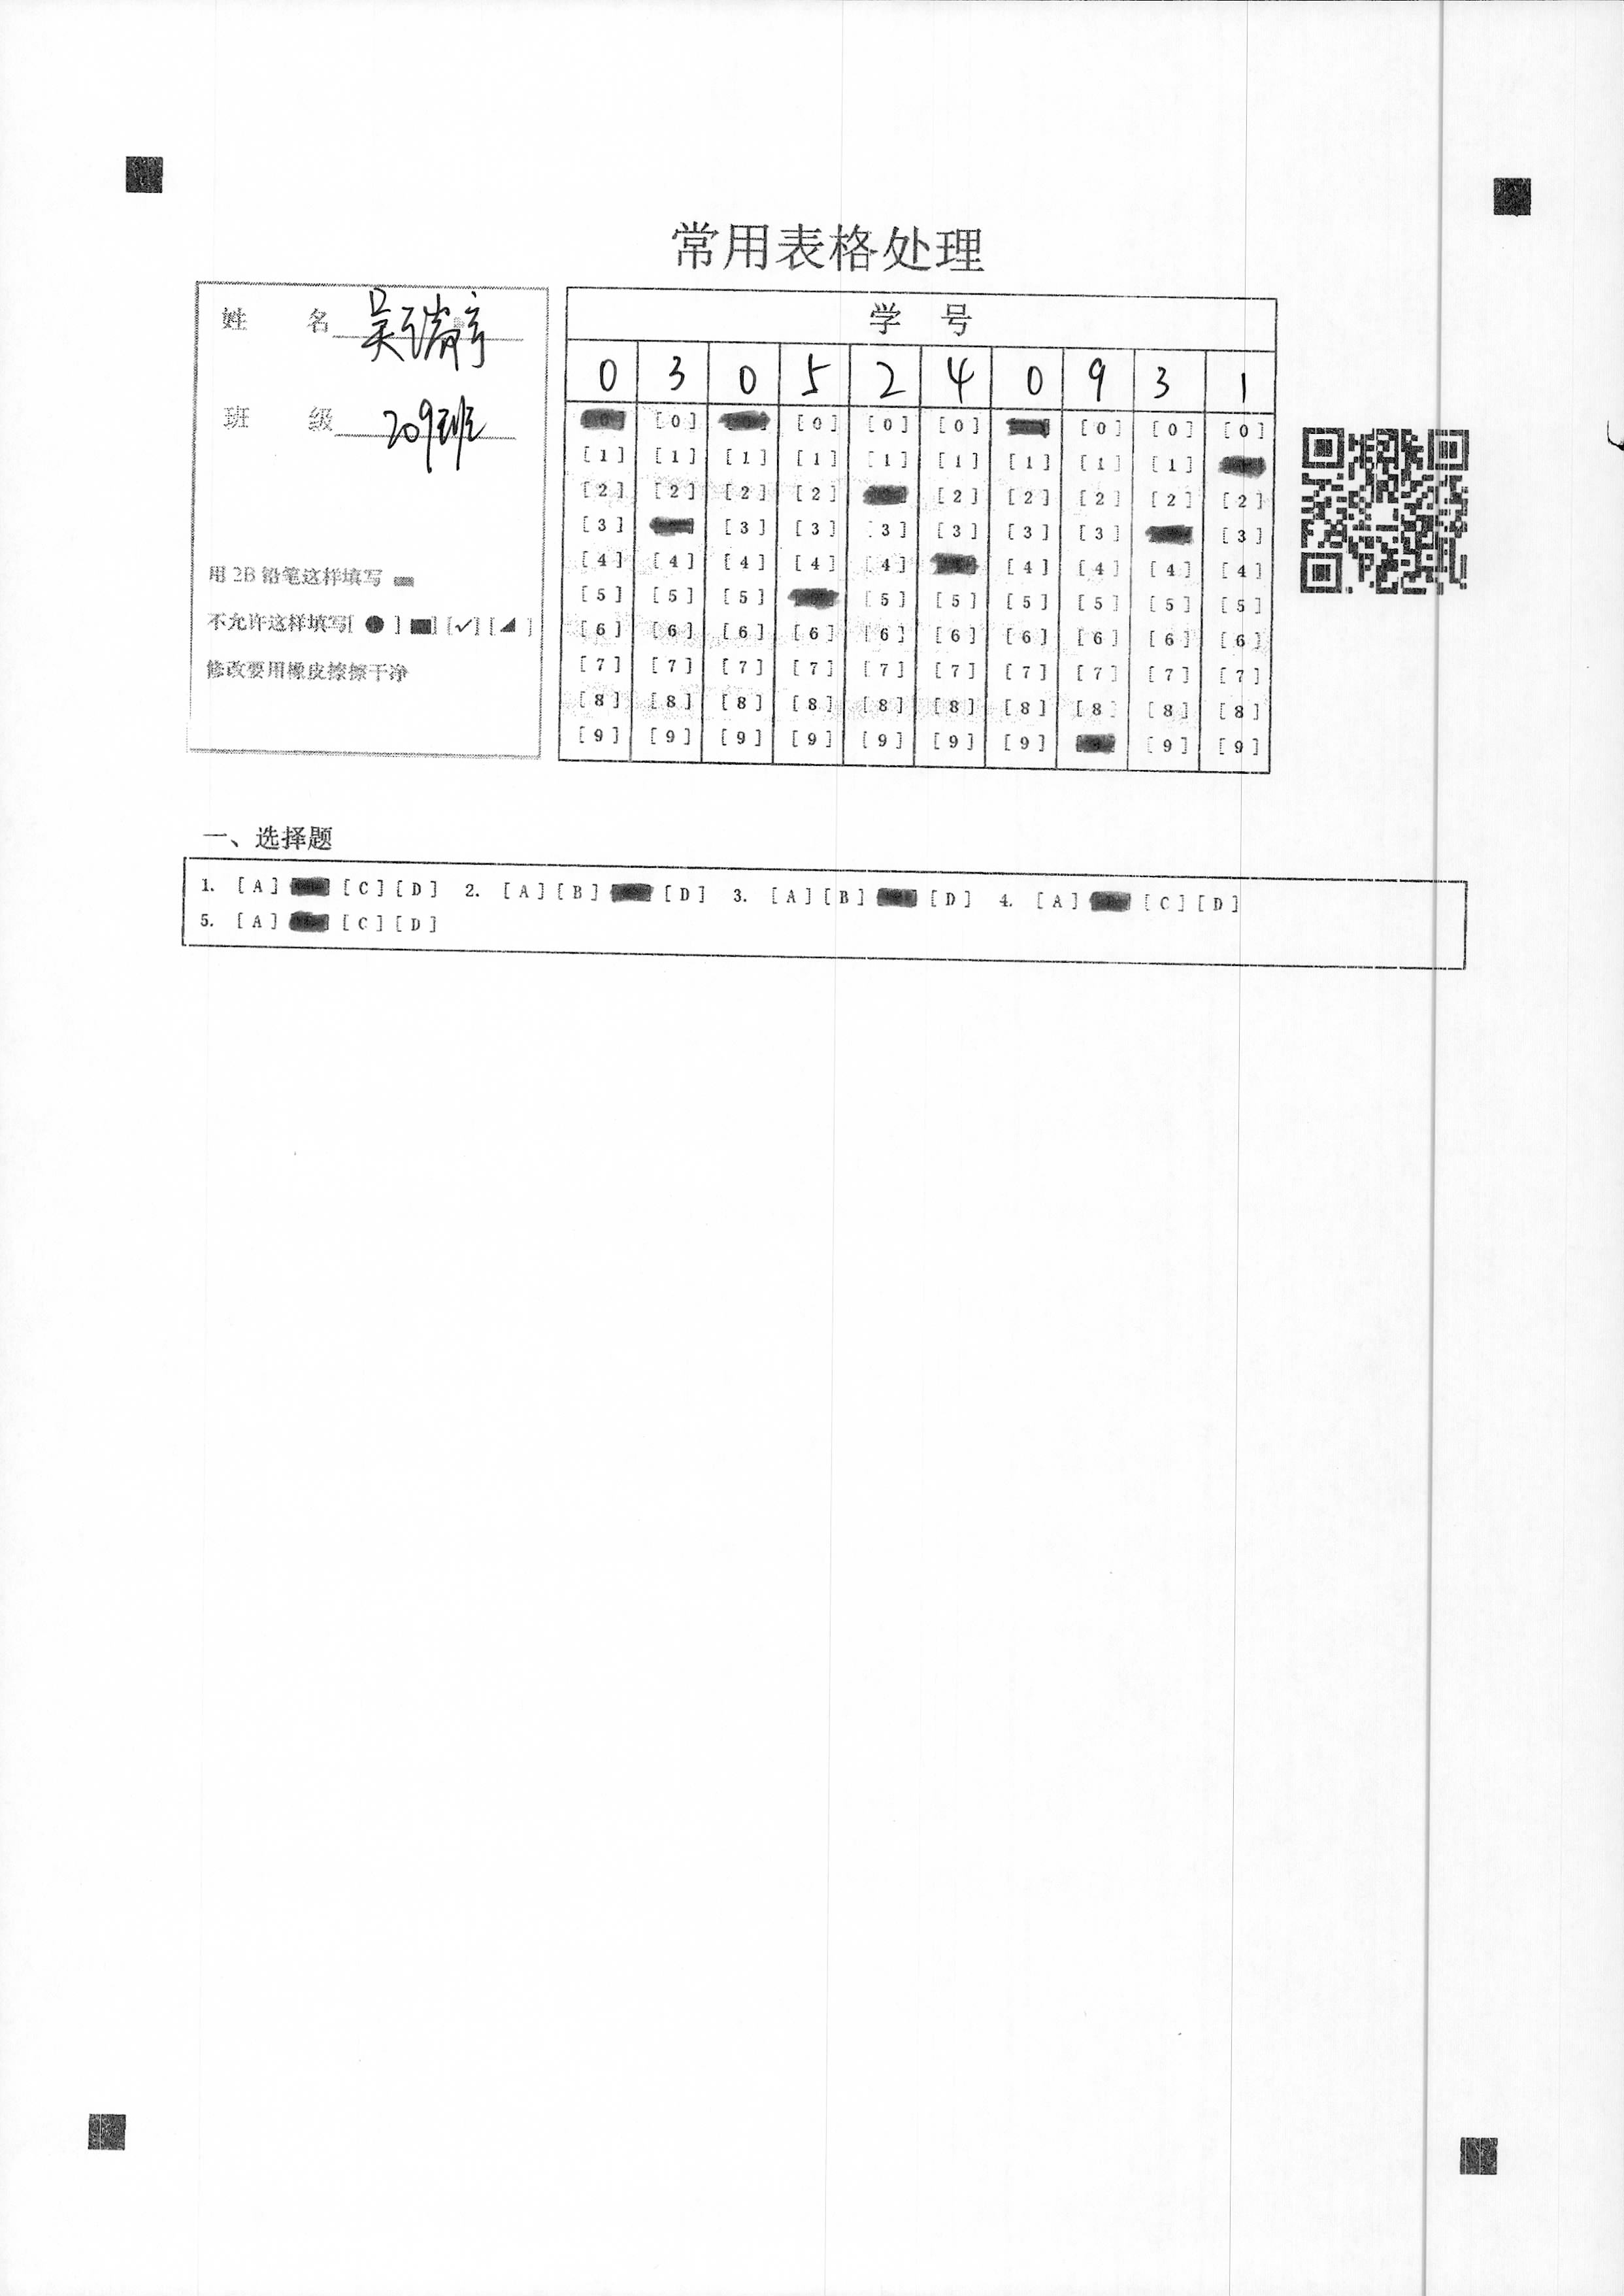 常用表格处理
姓 名 吴瑞亭
班 级 209班
用2B铅笔这样填写
不允许这样填写[ ● ] [■] [✓] [◢ ]
修改要用橡皮擦擦干净
学 号
0 3 0 5 2 4 0 9 3 1
[0] [0] [0] [0] [0] [0] [0]
[1] [1] [1] [1] [1] [1] [1] [1] [1]
[2] [2] [2] [2] [2] [2] [2] [2] [2]
[3] [3] [3] [3] [3] [3] [3] [3]
[4] [4] [4] [4] [4] [4] [4] [4] [4]
[5] [5] [5] [5] [5] [5] [5] [5] [5]
[6] [6] [6] [6] [6] [6] [6] [6] [6] [6]
[7] [7] [7] [7] [7] [7] [7] [7] [7] [7]
[8] [8] [8] [8] [8] [8] [8] [8] [8] [8]
[9] [9] [9] [9] [9] [9] [9] [9] [9]
一、选择题
1. [A] [C] [D] 2. [A] [B] [D] 3. [A] [B] [D] 4. [A] [C] [D]
5. [A] [C] [D]